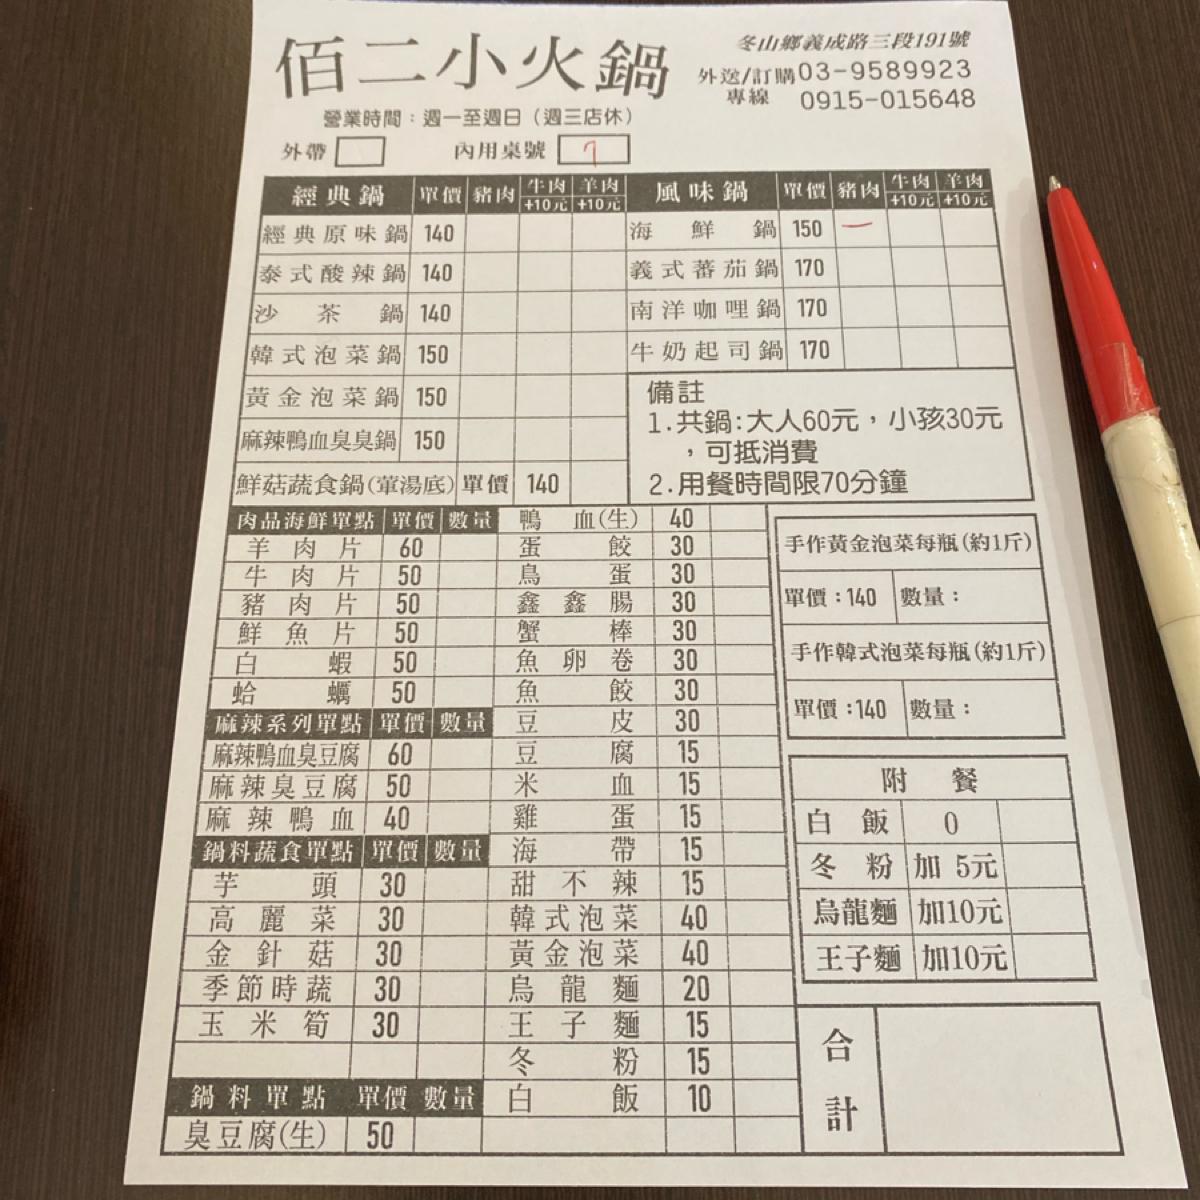 佰二小火鍋
冬山鄉義成路三段191號
外送/訂購 03-9589923
專線 0915-015648
營業時間：週一至週日（週三店休）
外帶
內用桌號 7
經典鍋 單價 豬肉 牛肉+10元 羊肉+10元
經典原味鍋 140
泰式酸辣鍋 140
沙茶鍋 140
韓式泡菜鍋 150
黃金泡菜鍋 150
麻辣鴨血臭臭鍋 150
鮮菇蔬食鍋(葷湯底) 單價 140
風味鍋 單價 豬肉 牛肉+10元 羊肉+10元
海鮮鍋 150 一
義式蕃茄鍋 170
南洋咖哩鍋 170
牛奶起司鍋 170
備註
1.共鍋:大人60元，小孩30元
，可抵消費
2.用餐時間限70分鐘
肉品海鮮單點 單價 數量
羊肉片 60
牛肉片 50
豬肉片 50
鮮魚片 50
白蝦 50
蛤蠣 50
麻辣系列單點 單價 數量
麻辣鴨血臭豆腐 60
麻辣臭豆腐 50
麻辣鴨血 40
鍋料蔬食單點 單價 數量
芋頭 30
高麗菜 30
金針菇 30
季節時蔬 30
玉米筍 30
鍋料單點 單價 數量
臭豆腐(生) 50
鴨血(生) 40
蛋餃 30
鳥蛋 30
鑫鑫腸 30
蟹棒 30
魚卵卷 30
魚餃 30
豆皮 30
豆腐 15
米血 15
雞蛋 15
海帶 15
甜不辣 15
韓式泡菜 40
黃金泡菜 40
烏龍麵 20
王子麵 15
冬粉 15
白飯 10
手作黃金泡菜每瓶(約1斤)
單價：140 數量：
手作韓式泡菜每瓶(約1斤)
單價：140 數量：
附餐
白飯 0
冬粉 加 5元
烏龍麵 加10元
王子麵 加10元
合計